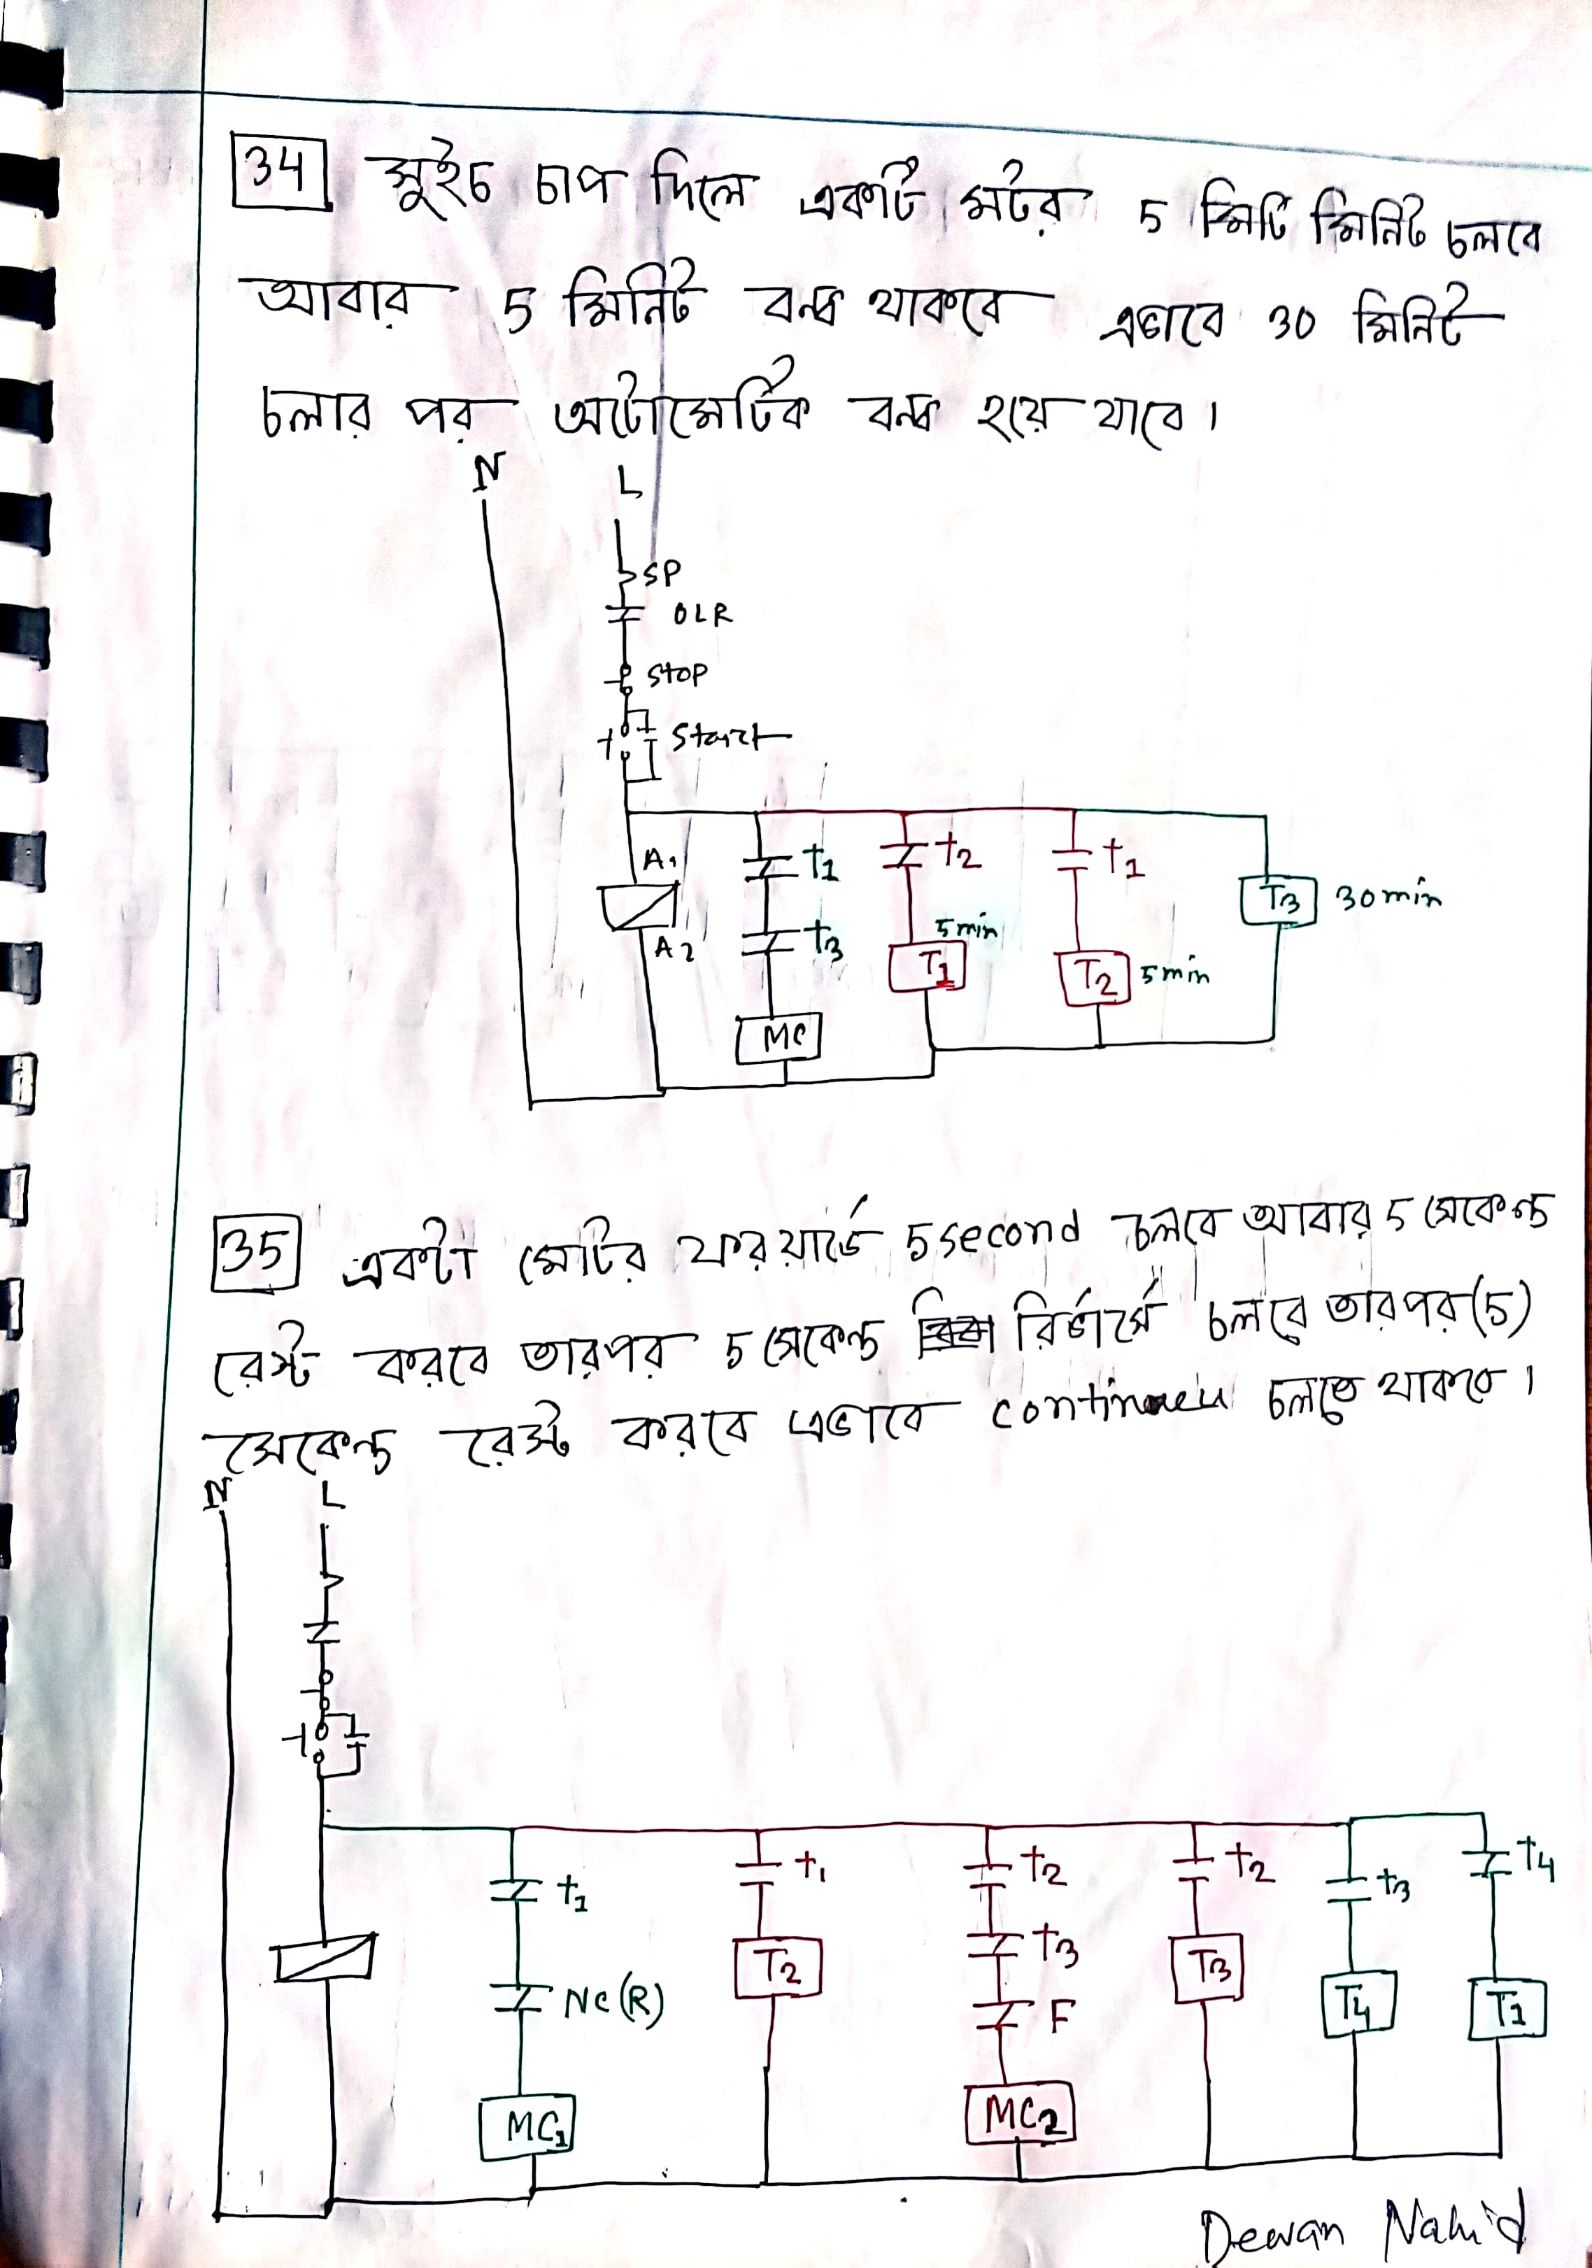 34 সুইচ চাপ দিলে একটি মটর 5 মিটি মিনিট চলবে
আবার 5 মিনিট বন্ধ থাকবে এভাবে 30 মিনিট
চলার পর অটোমেটিক বন্ধ হয়ে যাবে।
N L
SP
OLR
STOP
Start
A1 t1 t2 t1
T3 30min
A2 t3 5min
T1 T2 5min
MC
35 একটা মোটর ফরয়ার্ডে 5 second চলবে আবার 5 সেকেন্ড
রেস্ট করবে তারপর 5 সেকেন্ড রির্ভার্সে চলবে তারপর (5)
সেকেন্ড রেস্ট করবে এভাবে চলতে থাকবে।
N L
t1 t1 t2 t2 t3 t4
T2 t3 T3
NC(R) F T4 T1
MC1 MC2
Dewan Nahid